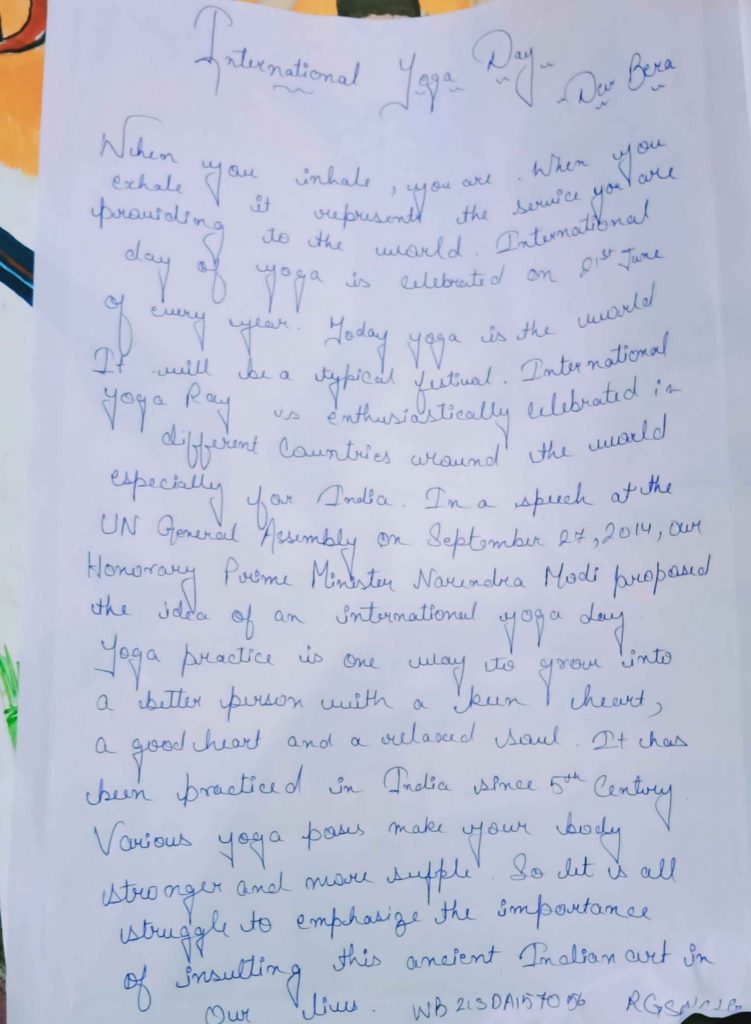 International Yoga Day
- Dev Bera
When you inhale, you are. When you
exhale it represents the service you are
providing to the world. International
day of yoga is celebrated on 21st June
of every year. Today yoga is the world
It will be a typical festival. International
yoga Ray is enthusiastically celebrated in
different Countries around the world
especially for India. In a speech at the
UN General Assembly on September 27, 2014, our
Honorary Prime Minister Narendra Modi proposed
the idea of an international yoga day
Yoga practice is one way to grow into
a better person with a keen heart,
a good heart and a relaxed soul. It has
been practiced in India since 5th Century
Various yoga poses make your body
stronger and more supple. So let is all
struggle to emphasize the importance
of insulting this ancient Indian art in
Our lives. WB21SDA157056